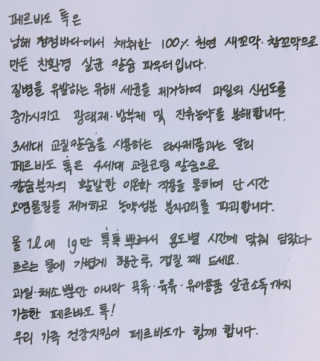 페르바도 톡은
남해 청정바다에서 채취한 100% 천연 새꼬막·참꼬막으로
만든 친환경 살균 칼슘 파우더입니다.
질병을 유발하는 유해 세균을 제거하여 과일의 신선도를
증가시키고 광택제·방부제 및 잔류농약을 분해합니다.
3세대 교질칼슘을 사용하는 타사제품과는 달리
페르바도 톡은 4세대 교질코팅 칼슘으로
칼슘분자의 활발한 이온화 작용을 통하여 단 시간
오염물질을 제거하고 농약성분 분자고리를 파괴합니다.
물 1L에 1g만 톡톡 뿌려서 용도별 시간에 맞춰 담갔다
흐르는 물에 가볍게 헹군후, 껍질 째 드세요.
과일·채소 뿐만 아니라 곡류·육류·유아용품 살균소독 까지
가능한 페르바도 톡!
우리 가족 건강지킴이 페르바도가 함께 합니다.